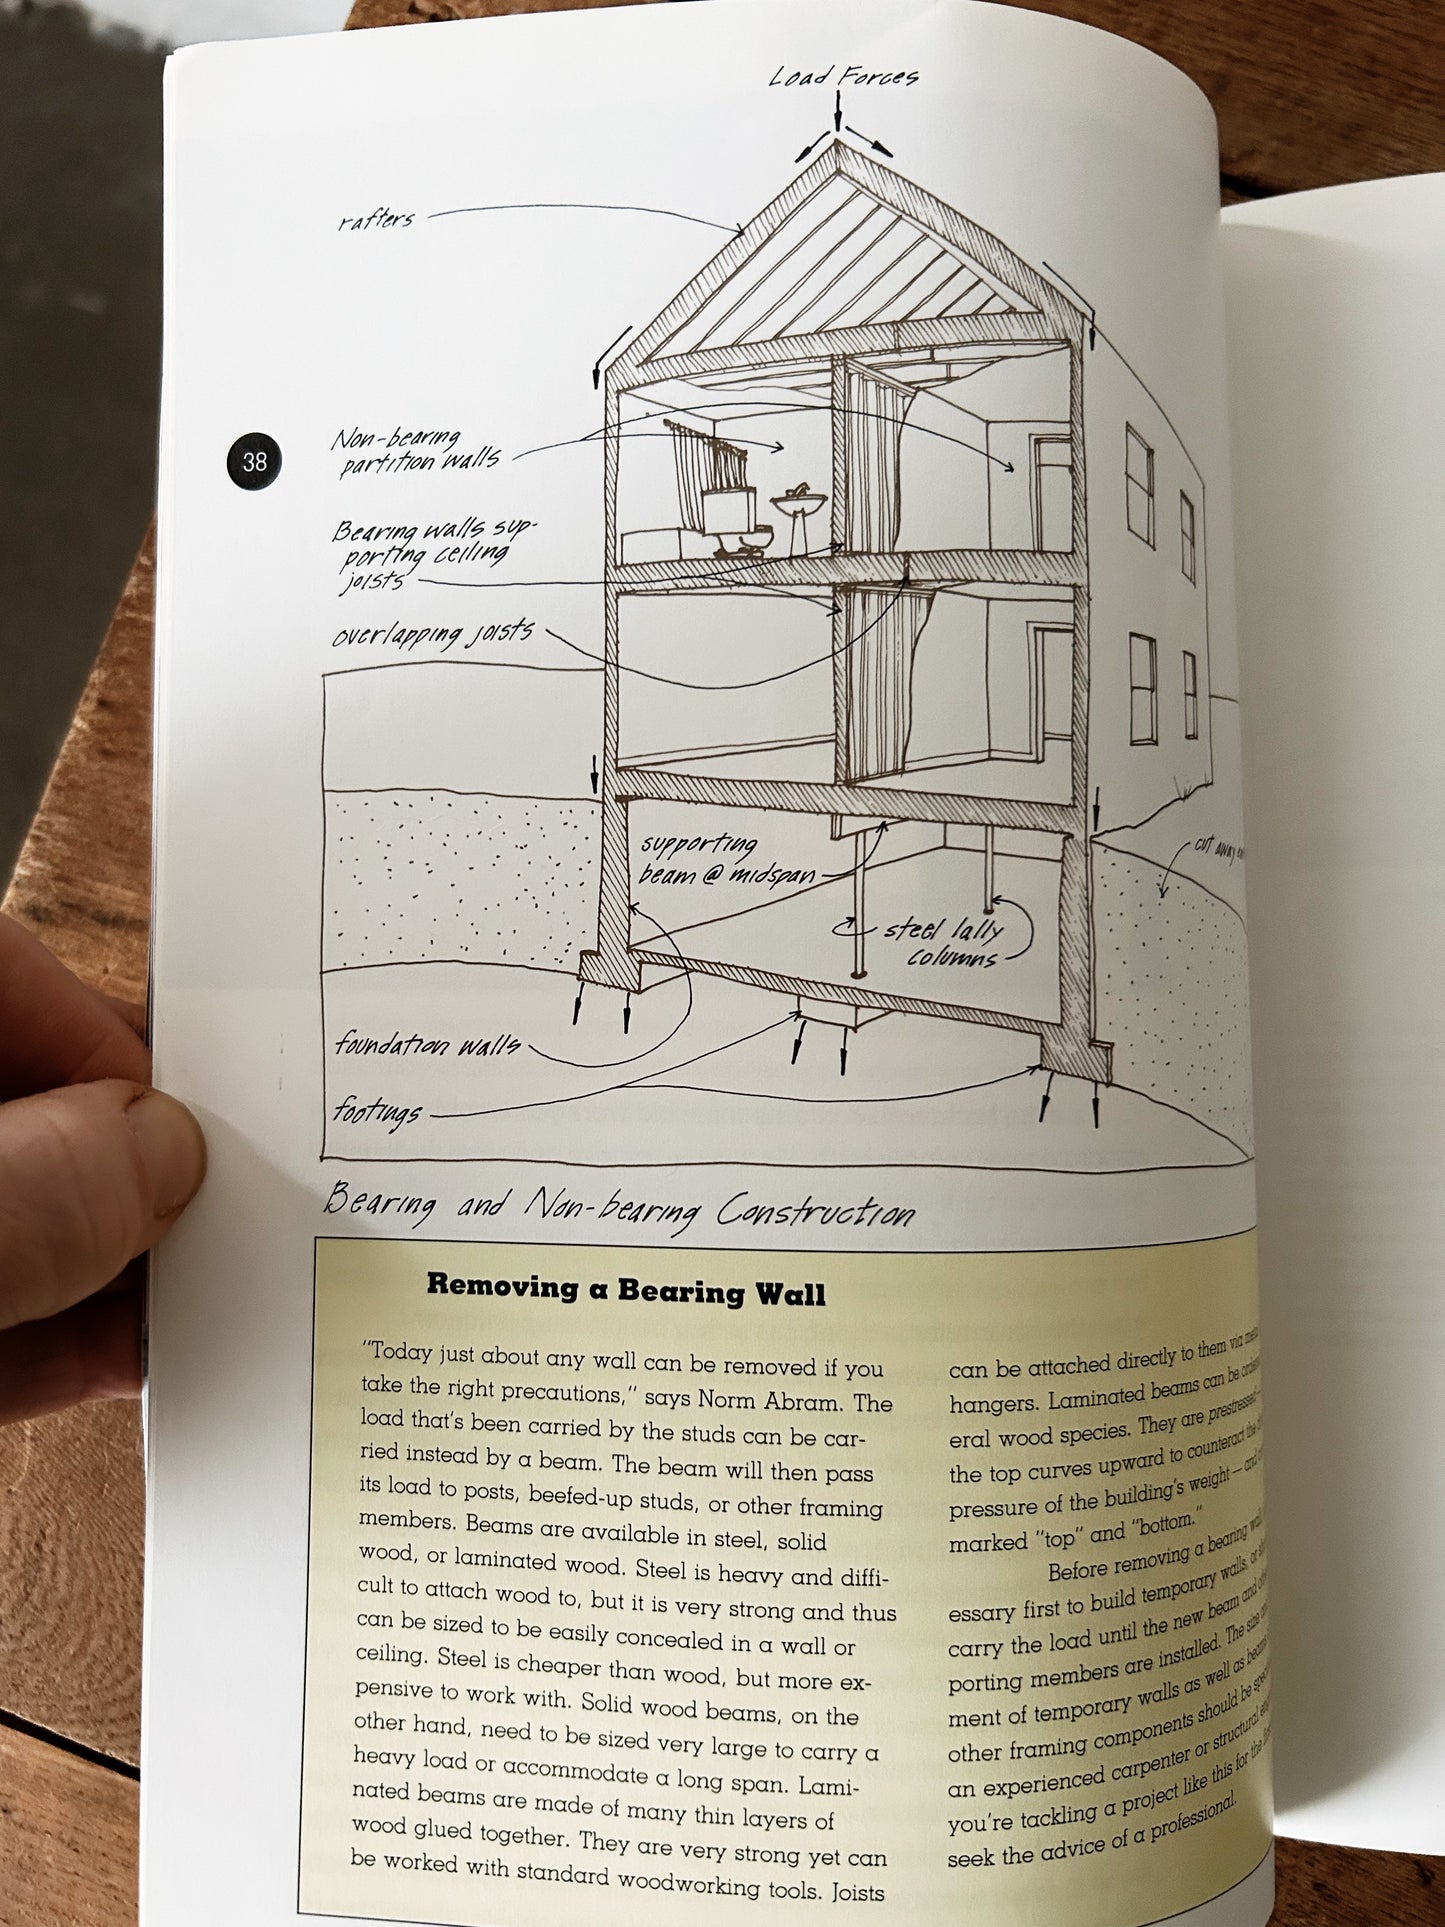 Load Forces
rafters
38
Non-bearing
partition walls
Bearing walls sup-
porting ceiling
joists
overlapping joists
supporting
beam @ midspan
cut away
steel lally
columns
foundation walls
footings
Bearing and Non-bearing Construction
Removing a Bearing Wall
"Today just about any wall can be removed if you
take the right precautions," says Norm Abram. The
load that's been carried by the studs can be car-
ried instead by a beam. The beam will then pass
its load to posts, beefed-up studs, or other framing
members. Beams are available in steel, solid
wood, or laminated wood. Steel is heavy and diffi-
cult to attach wood to, but it is very strong and thus
can be sized to be easily concealed in a wall or
ceiling. Steel is cheaper than wood, but more ex-
pensive to work with. Solid wood beams, on the
other hand, need to be sized very large to carry a
heavy load or accommodate a long span. Lami-
nated beams are made of many thin layers of
wood glued together. They are very strong yet can
be worked with standard woodworking tools. Joists
can be attached directly to them via
hangers. Laminated beams can be
eral wood species. They are prestressed—
the top curves upward to counteract the
pressure of the building's weight—and
marked "top" and "bottom."
Before removing a bearing wall
essary first to build temporary walls, or
carry the load until the new beam and
porting members are installed. The size
ment of temporary walls as well as
other framing components should be
an experienced carpenter or structural
you're tackling a project like this for the
seek the advice of a professional.